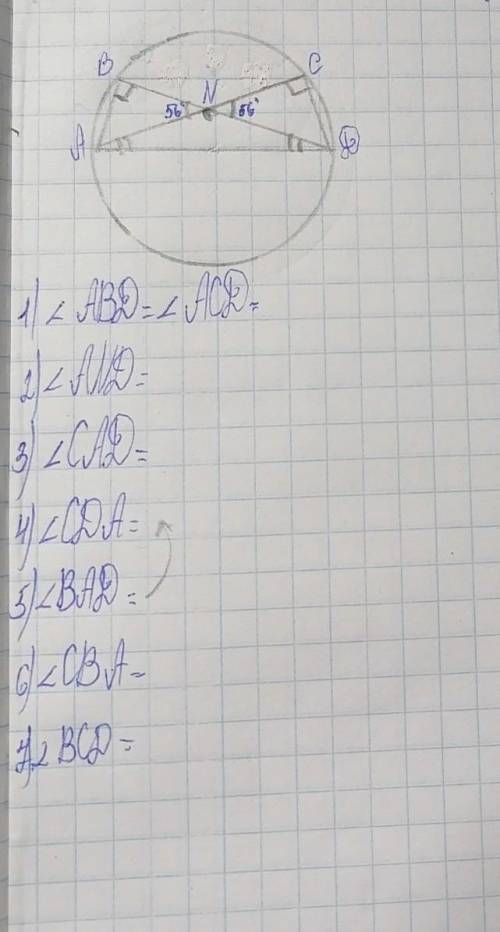 B C
N
56° 56°
A D
1) ∠ABD = ∠ACD =
2) ∠AND =
3) ∠CAD =
4) ∠CDA =
5) ∠BAD =
6) ∠CBA =
7) ∠BCD =